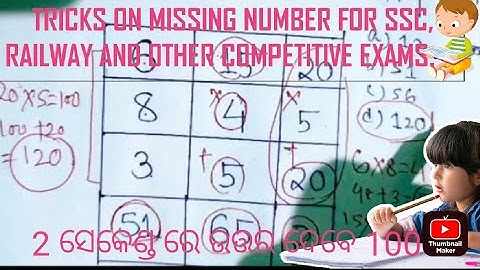 TRICKS ON MISSING NUMBER FOR SSC,
RAILWAY AND OTHER COMPETITIVE EXAMS.
6 15 20
8 4 5
3 5 20
51 65
20×5=100
100+20
=120
c) 56
d) 120
2 ସେକେଣ୍ଡ ରେ ଉତ୍ତର ଦେବେ 100
Thumbnail
Maker